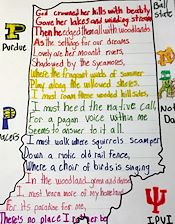 God crowned her hills with beauty
Gave her lakes and winding streams
Then he edged them all with woodlands
As the settings for our dreams
Lovely are her moonlit rivers
Shadowed by the Sycamores,
Where the fragrant winds of Summer
Play along the willowed shores.
I must roam those wooded hillsides,
I must heed the native call,
For a pagan voice within me
Seems to answer to it all.
I must walk where squirrels scamper
Down a rustic old rail fence,
Where a choir of birds is singing
In the woodland green and dense
I must learn more of my homeland
For its paradise for me,
There's no place I
Purdue
Pacers
Ball
State
IPUI